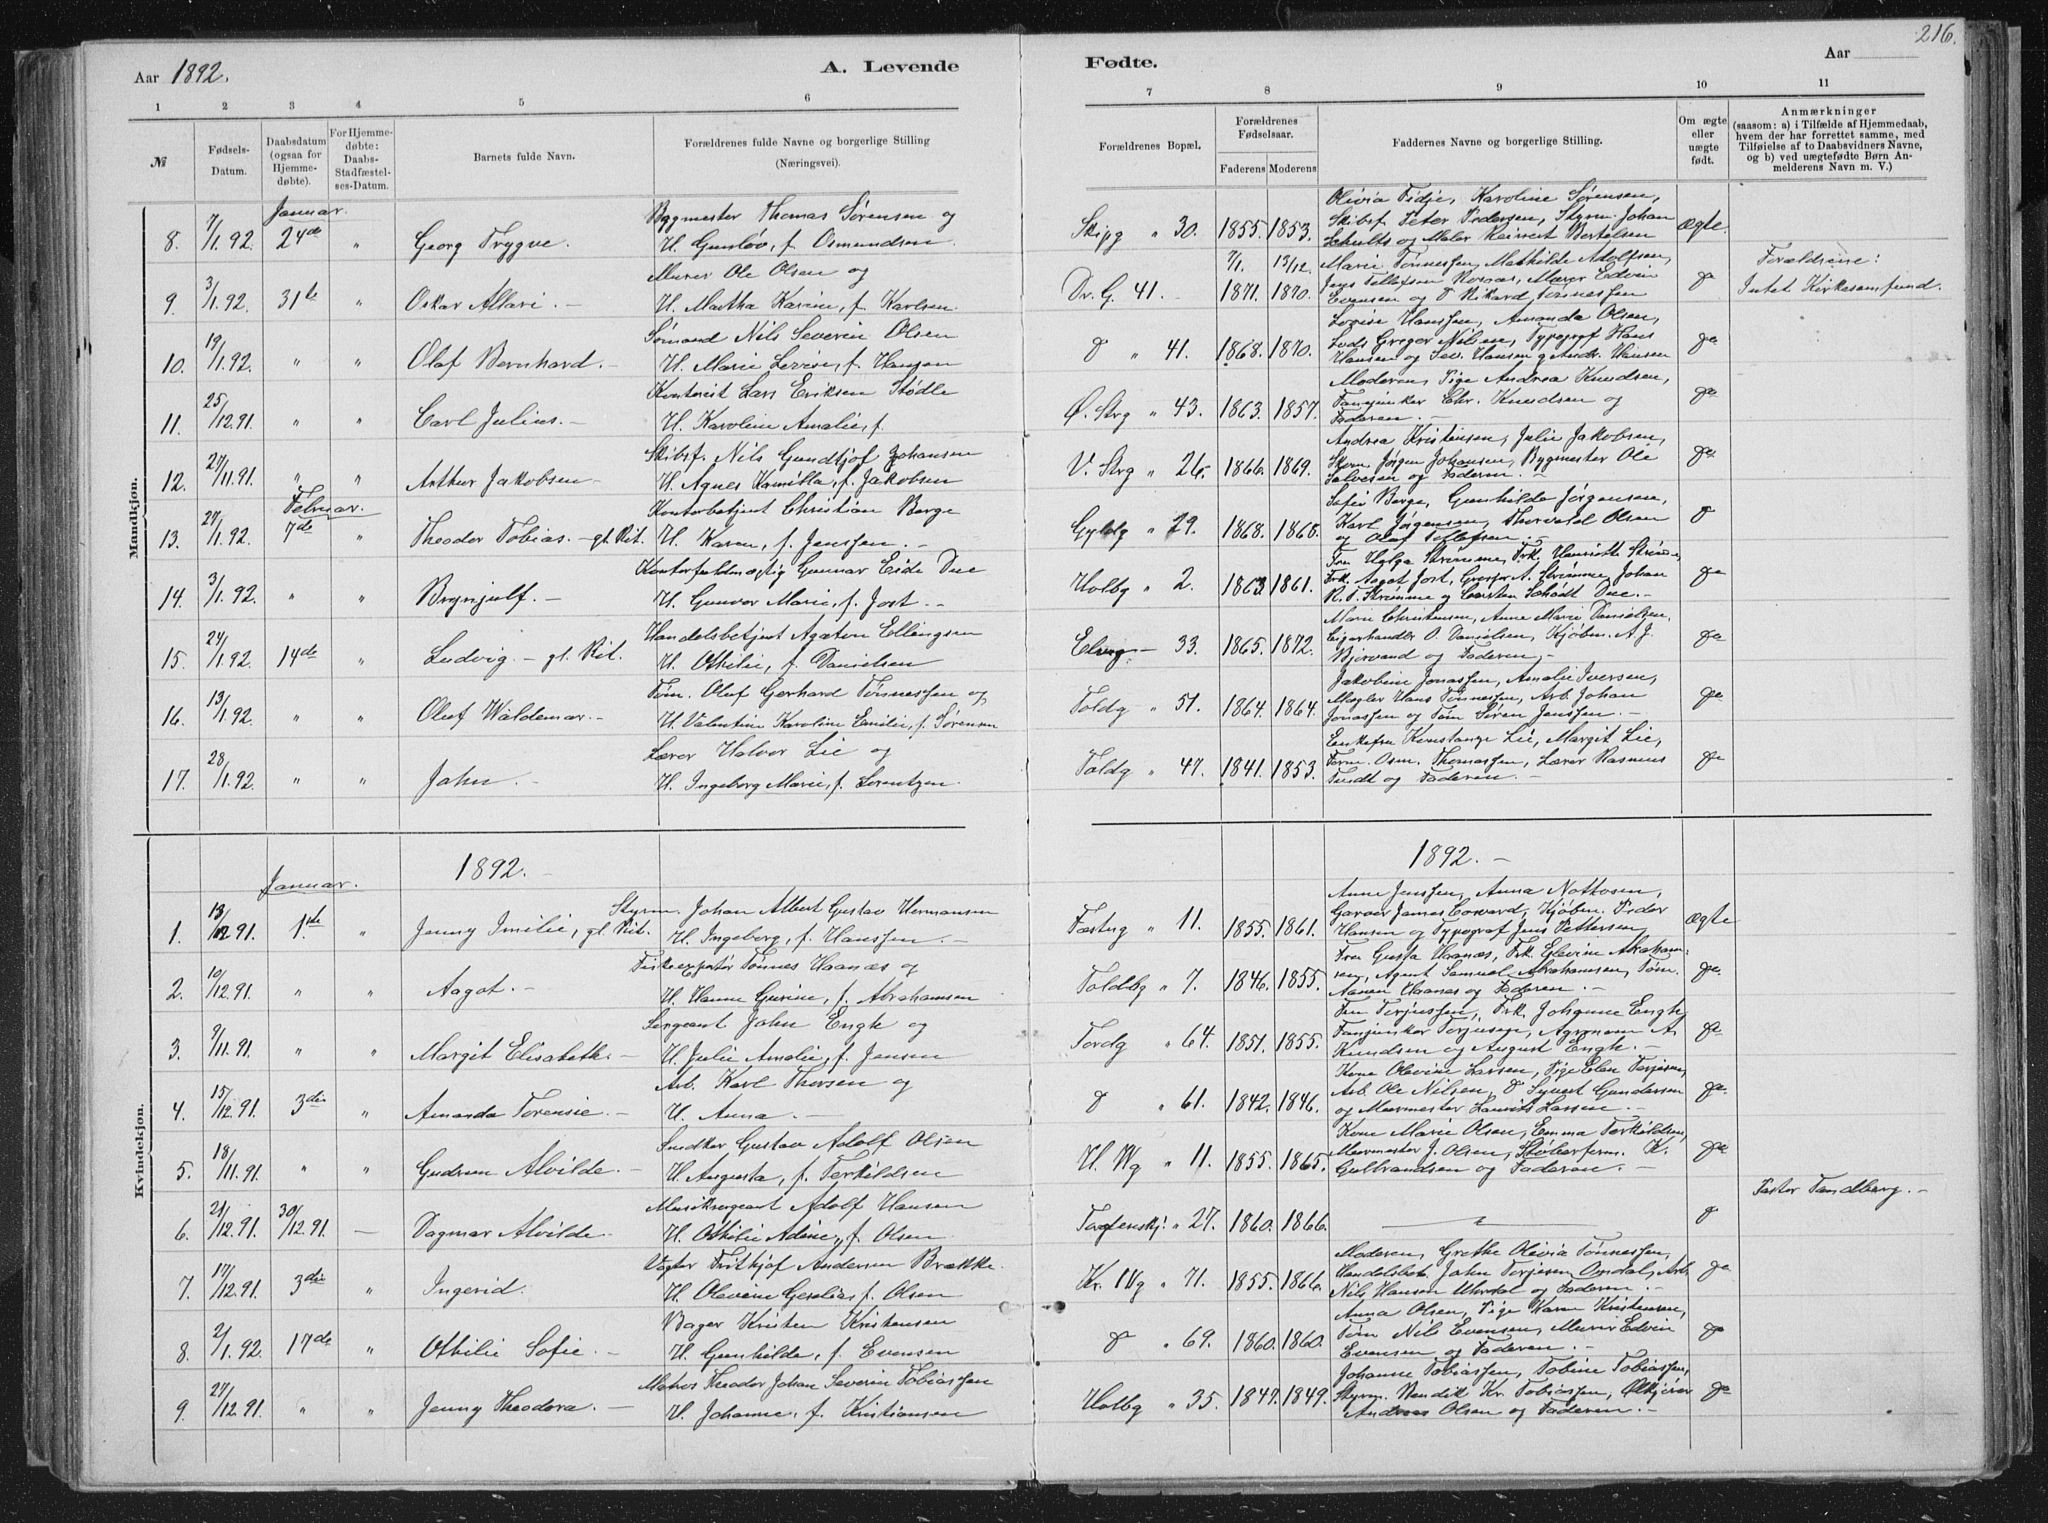 216.
Aar 1892.
A. Levende
Fødte.
Aar
1 2 3 4 5 6 7 8 9 10 11
№
Fødsels-Datum.
Daabsdatum (ogsaa for Hjemmedøbte).
For Hjemmedøbte: Daabs-Stadfæstelses-Datum.
Barnets fulde Navn.
Forældrenes fulde Navne og borgerlige Stilling (Næringsvei).
Forældrenes Bopæl.
Forældrenes Fødselsaar.
Faderens Moderens
Faddernes Navne og borgerlige Stilling.
Om ægte eller uægte født.
Anmærkninger
(saasom: a) i Tilfælde af Hjemmedaab, hvem der har forrettet samme, med Tilføielse af to Daabsvidners Navne, og b) ved uægtefødte Børn Anmelderens Navn m. V.)
Mandkjøn.
Januar.
Bygmester Thomas Sørensen og
Olivia Fidje, Karoline Sørensen,
Skibsf. Peter Pedersen, Styrm. Johan
8. 7/1.92. 24de " Georg Trygve. H. Gunløv, f. Osmundsen. Skipg " 30. 1855. 1853. Schults og Maler Reinert Bertelsen Ægte.
Murer Ole Olsen og
7/1. 13/12. Marie Tønnessen, Mathilde Adolfsen,
Forældrene:
9. 3/1.92. 31te " Oskar Allari. — H. Martha Karine, f. Karlsen. Dr. G. 41. 1871. 1870. Evensen og Rikard Tønnessen do Intet Kirkesamfund.
Sømand Nils Severin Olsen
Lovise Hanssen, Amanda Olsen,
Lods Gregor Nilsen, Typograf Hans
10. 19/1.92. " " Olaf Bernhard. — H. Marie Lovise, f. Hansen do " 41. 1868. 1870. Hansen og Sev. Hansen og Andr. Hansen do
Kontorist Lars Eriksen Stødle
Moderen, Pige Andrea Knudsen,
Fanejunker Chr. Knudsen og
11. 25/12.91. " " Carl Julius. — H. Karoline Amalie, f. Ø. Strg " 43. 1863. 1857. Faderen. — do
Skibsf. Nils Gundtjof Johansen
Andrea Kristensen, Julie Jakobsen,
Jørgen Johansen, Bygmester Ole
12. 27/11.91. " " Arthur Jakobsen — H. Agnes Kamilla, f. Jakobsen V. Strg " 26. 1866. 1869. Salvesen og Faderen — do
Februar.
Kontorbetjent Christian Berge
Sofie Berge, Gunhilde Jørgensen,
Karl Jørgensen, Thorvald Olsen
13. 27/1.92. 7de " Theodor Tobias. — gl. Rit. H. Karen, f. Jenssen. — Gyldg " 29. 1868. 1865. og Olaf Tellefsen. — do
Kontorfuldmægtig Gunnar Eide Due
Fru Helga Strømme, Frk. Henriette Strømme,
Frk. Aagot Jost, Grosfr A. Strømme, Johan
14. 3/1.92. " " Brynjulf. — H. Gunvor Marie, f. Jost. — Holbg " 2. 1863. 1861. R. T. Strømme og Carsten Schødt Due. — do
Handelsbetjent Agaton Ellingsen
Marie Christensen, Anne Marie Danielsen,
Cigarhandler O. Danielsen, Kjøbm. A. J.
15. 24/1.92. 14de " Ludvig. — gl. Rit. H. Othilie, f. Danielsen Elveg — 33. 1865. 1872. Bjorvand og Faderen. — do
Tøm. Oluf Gerhard Tønnessen og
Jakobine Jonassen, Amalie Iversen,
Mægler Hans Tønnessen, Arb. Johan
16. 13/1.92. " " Oluf Waldemar. — H. Valentine Karoline Emilie, f. Sørensen Toldg " 51. 1864. 1864. Jonassen og Tøm Søren Jenssen. — do
Lærer Halvor Lie og
Enkefru Konstanze Lie, Margit Lie,
Form. Osm. Thomassen, Lærer Rasmus
17. 28/1.92. " " John. — H. Ingeborg Marie, f. Lorentzen. Toldg " 47. 1841. 1853. Tvedt og Faderen. — do
Kvindekjøn.
1892.
1892. —
Januar.
Styrm. Johan Albert Gustav Hermansen
Anne Jenssen, Anna Nottosen,
Garver James Coward, Kjøbm. Peder
1. 13/12.91. 1ste " Jenny Emilie, gl. Rit. H. Ingeborg, f. Hanssen. — Fæstng " 11. 1855. 1861. Hansen og Typograf Jens Pettersen Ægte
Fiskeexportør Tønnes Haanæs og
Fru Gusta Haanæs, Frk. Elevine Abrahamsen,
Agent Samuel Abrahamsen, Tøm.
2. 10/12.91. " " Aagot. — H. Hanne Gurine, f. Abrahamsen Toldbg " 7. 1846. 1855. Aanen Haanæs og Faderen. — do
Sergeant John Engh og
Fru Torjussen, Frk. Johanne Engh,
Fanejunker Torjusen, Agronom A.
3. 9/11.91. " " Margit Elisabeth. — H. Julie Amalie, f. Jensen Tordg " 64. 1851. 1855. Knudsen og August Engh. — do
Arb. Karl Thorsen og
Kone Olevine Larsen, Pige Elen Torjesen,
Arb. Ole Nilsen, do Syvert Gundersen
4. 15/12.91. 3die " Amanda Torensie. — H. Anna. — do " 61. 1842. 1846. og Murmester Laurits Larsen. — do
Snedker Gustav Adolf Olsen
Kone Marie Olsen, Emma Terkildsen,
Murmester J. Olsen, Støberform. K.
5. 18/11.91. " " Gudrun Alvilde. — H. Augusta, f. Terkildsen H. Wg " 11. 1855. 1865. Gulbrandsen og Faderen. — do
Musiksergeant Adolf Hansen
Pastor Tandberg. —
6. 21/12.91. 30/12.91. — Dagmar Alvilde. H. Othilie Adine, f. Olsen " 27. 1860. 1866. do
Vogter Frithjof Andersen Brække.
Moderen, Grethe Olivia Tønnessen,
Handelsbet. John Torjesen Omdal, Arb.
7. 17/12.91. 3die " Ingerid. H. Olevine Geselia, f. Olsen Kr. IVg " 71. 1855. 1866. Nils Hansen og Faderen. — do
Bager Kristen Kristensen
Anna Olsen, Pige Karen Kristensen,
Tøm Nils Evensen, Murer Edvin
8. 2/1.92. 17de " Othilie Sofie. — H. Gunhilde, f. Evensen do " 69. 1860. 1860. Evensen og Faderen. — do
Matros Theodor Johan Severin Tobiassen
Johanne Tobiassen, Tobine Tobiassen,
Styrm. Bendik Kr. Tobiassen, Ølkjører
9. 27/12.91. " " Jenny Theodora. — H. Johanne, f. Kristiansen Holbg " 35. 1847. 1849. Andreas Olsen og Faderen. — do